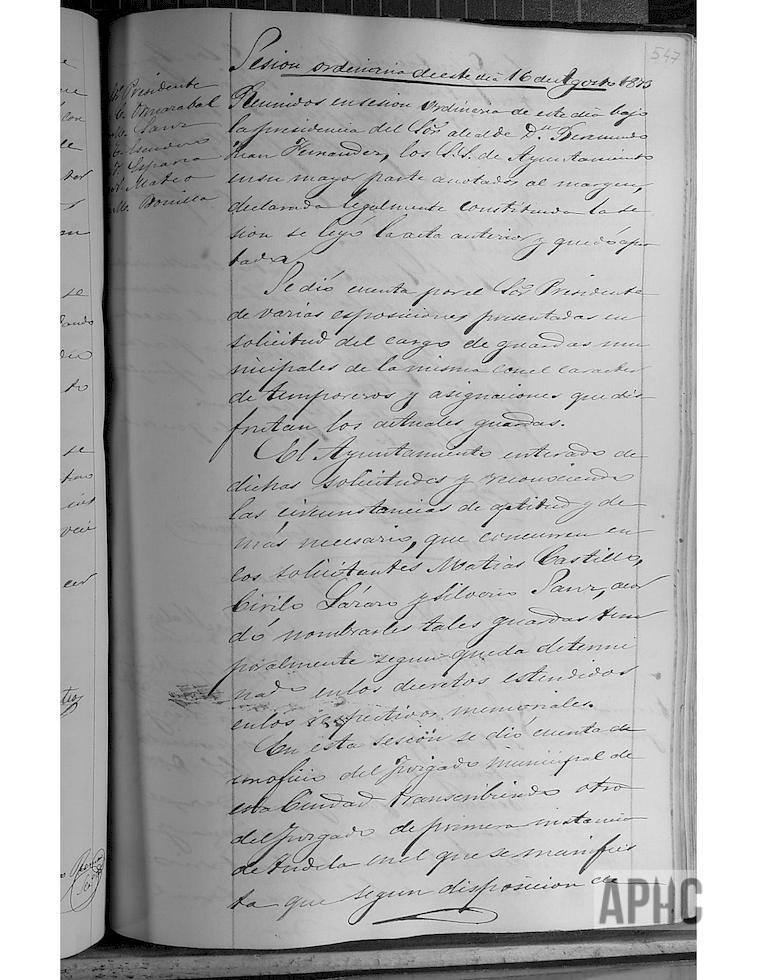 547
Sesion ordinaria de este dia 16 de Agosto 1873
Presidente
Omarabal
Sanz
España
Mateo
Bonilla
Reunidos en sesion ordinaria de este dia bajo
la presidencia del Sor. alcalde Dn.
Juan Fernandez, los S.S. de Ayuntamiento
en su mayor parte anotados al margen,
declarada legalmente constituida la se
sion se leyó la acta anterior y quedó apro
bada.
Se dió cuenta por el Sor. Presidente
de varias esposiciones presentadas en
solicitud del cargo de guardas mu
nicipales de la misma con el caracter
de temporeros y asignaciones que dis
frutan los actuales guardas.
El Ayuntamiento enterado de
dichas solicitudes y reconociendo
las circunstancias de aptitud y de
mas necesario, que concurren en
los solicitantes Matias Castillo,
Cirilo Lázaro y Silverio Sanz, acor
dó nombrarles tales guardas tem
poralmente segun queda determi
nado en los decretos estendidos
en los respectivos memoriales.
En esta sesion se dió cuenta de
un oficio del Juzgado municipal de
esta Ciudad transcribiendo otro
del Juzgado de primera instancia
de Tudela en el que se manifies
ta que segun disposicion de
APHC